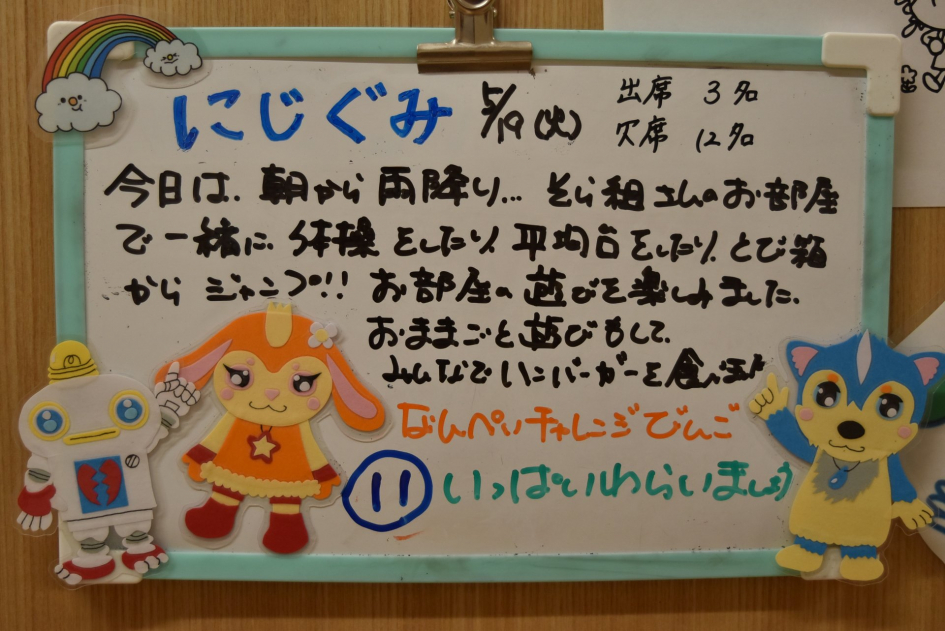 にじぐみ 5/19(火) 出席 3名
欠席 12名
今日は、朝から雨降り... そら組さんのお部屋
で一緒に、体操をしたり、平均台をしたり、とび箱
からジャンプ!! お部屋の遊びを楽しみました。
おままごと遊びもして、
みんなでハンバーガーを食べました
なんぺいチャレンジびんご
11 いっぱいわらいましょう